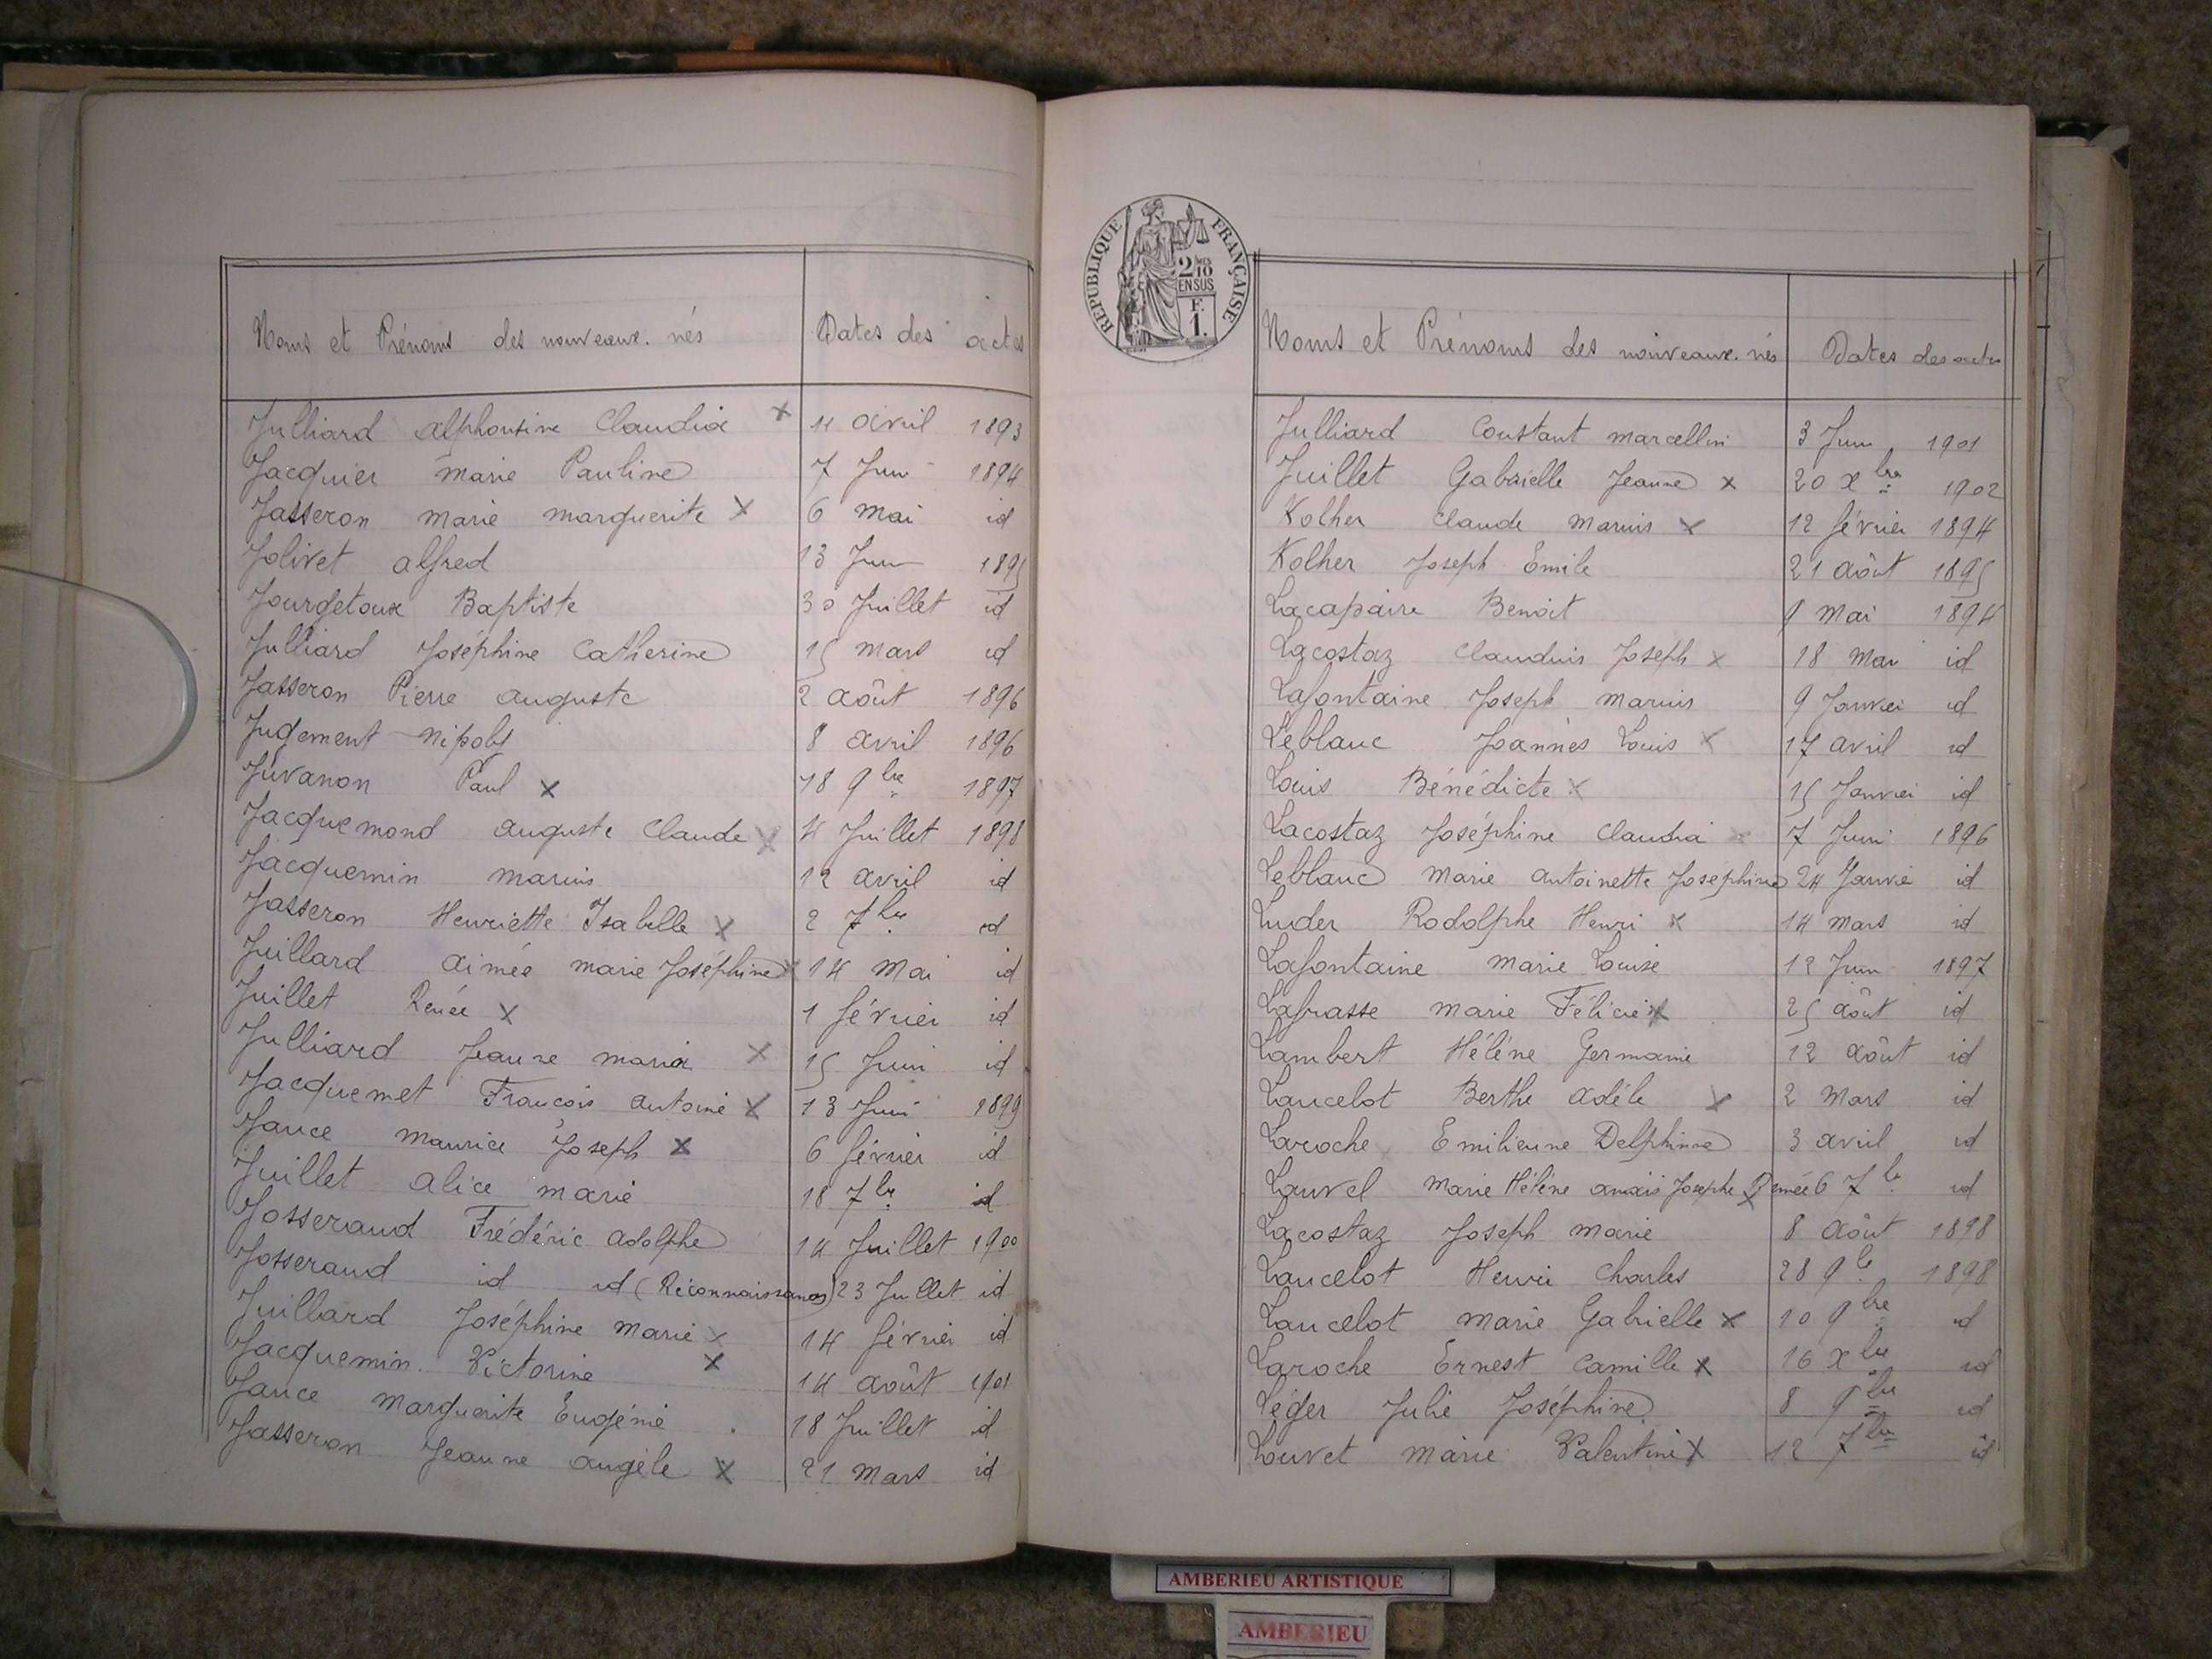 Noms et Prénoms des nouveaux-nés Dates des actes
Julliard alphonsine Claudia x 11 avril 1893
Jacquier marie Pauline 7 Juin 1894
Jasseron marie marguerite x 6 mai id
Jolivet alfred 13 Juin 1895
Jourgetoux Baptiste 30 Juillet id
Julliard Joséphine Catherine 15 mars id
Jasseron Pierre auguste 2 août 1896
Jugement 8 avril 1896
Juvanon Paul x 18 9bre 1897
Jacquemond auguste Claude x 4 Juillet 1898
Jacquemin marius 12 avril id
Jasseron Henriette Isabelle x 2 7bre id
Juillard aimée marie Joséphine x 14 Mai id
Juillet Renée x 1 février id
Julliard Jeanne maria x 15 Juin id
Jacquemet François antoine x 13 Juin 1899
Jance maurice Joseph x 6 février id
Juillet alice marie 18 7bre id
Josserand Frédéric adolphe 14 Juillet 1900
Josserand id id (Reconnaissance) 23 Juillet id
Juillard Joséphine marie x 14 février id
Jacquemin Victorine x 14 août 1901
Jance Marguerite Eugénie 18 Juillet id
Jasseron Jeanne angèle x 21 mars id
REPUBLIQUE FRANÇAISE
2/10 MES
EN SUS
F.
1.
Noms et Prénoms des nouveaux-nés Dates des actes
Julliard Constant marcellin 3 Juin 1901
Juillet Gabrielle Jeanne x 20 xbre 1902
Kolher Claude marius x 12 février 1894
Kolher Joseph Emile 21 août 1895
Lacapaire Benoit 9 Mai 1894
Lacostaz Claudius Joseph x 18 Mai id
Lafontaine Joseph marius 9 Janvier id
Leblanc Joannès Louis x 17 avril id
Louis Bénédicte x 15 Janvier id
Lacostaz Joséphine Claudia x 7 Juin 1896
Leblanc marie antoinette Joséphine 24 Janvier id
Luder Rodolphe Henri x 14 mars id
Lafontaine marie Louise 12 Juin 1897
Lafrasse marie Félicie x 25 août id
Lambert Hélène Germaine 12 août id
Lancelot Berthe adèle x 2 Mars id
Laroche Emilienne Delphine 3 avril id
Lauvel marie Hélène anaïs Josephe Renée x 6 7bre id
Lacostaz Joseph marie 8 août 1898
Lancelot Henri Charles 28 9bre 1898
Lancelot marie Gabrielle x 10 9bre id
Laroche Ernest Camille x 16 xbre id
Léger Julie Joséphine 8 9bre id
Louvet marie Valentine x 12 7bre id
AMBERIEU ARTISTIQUE
AMBERIEU